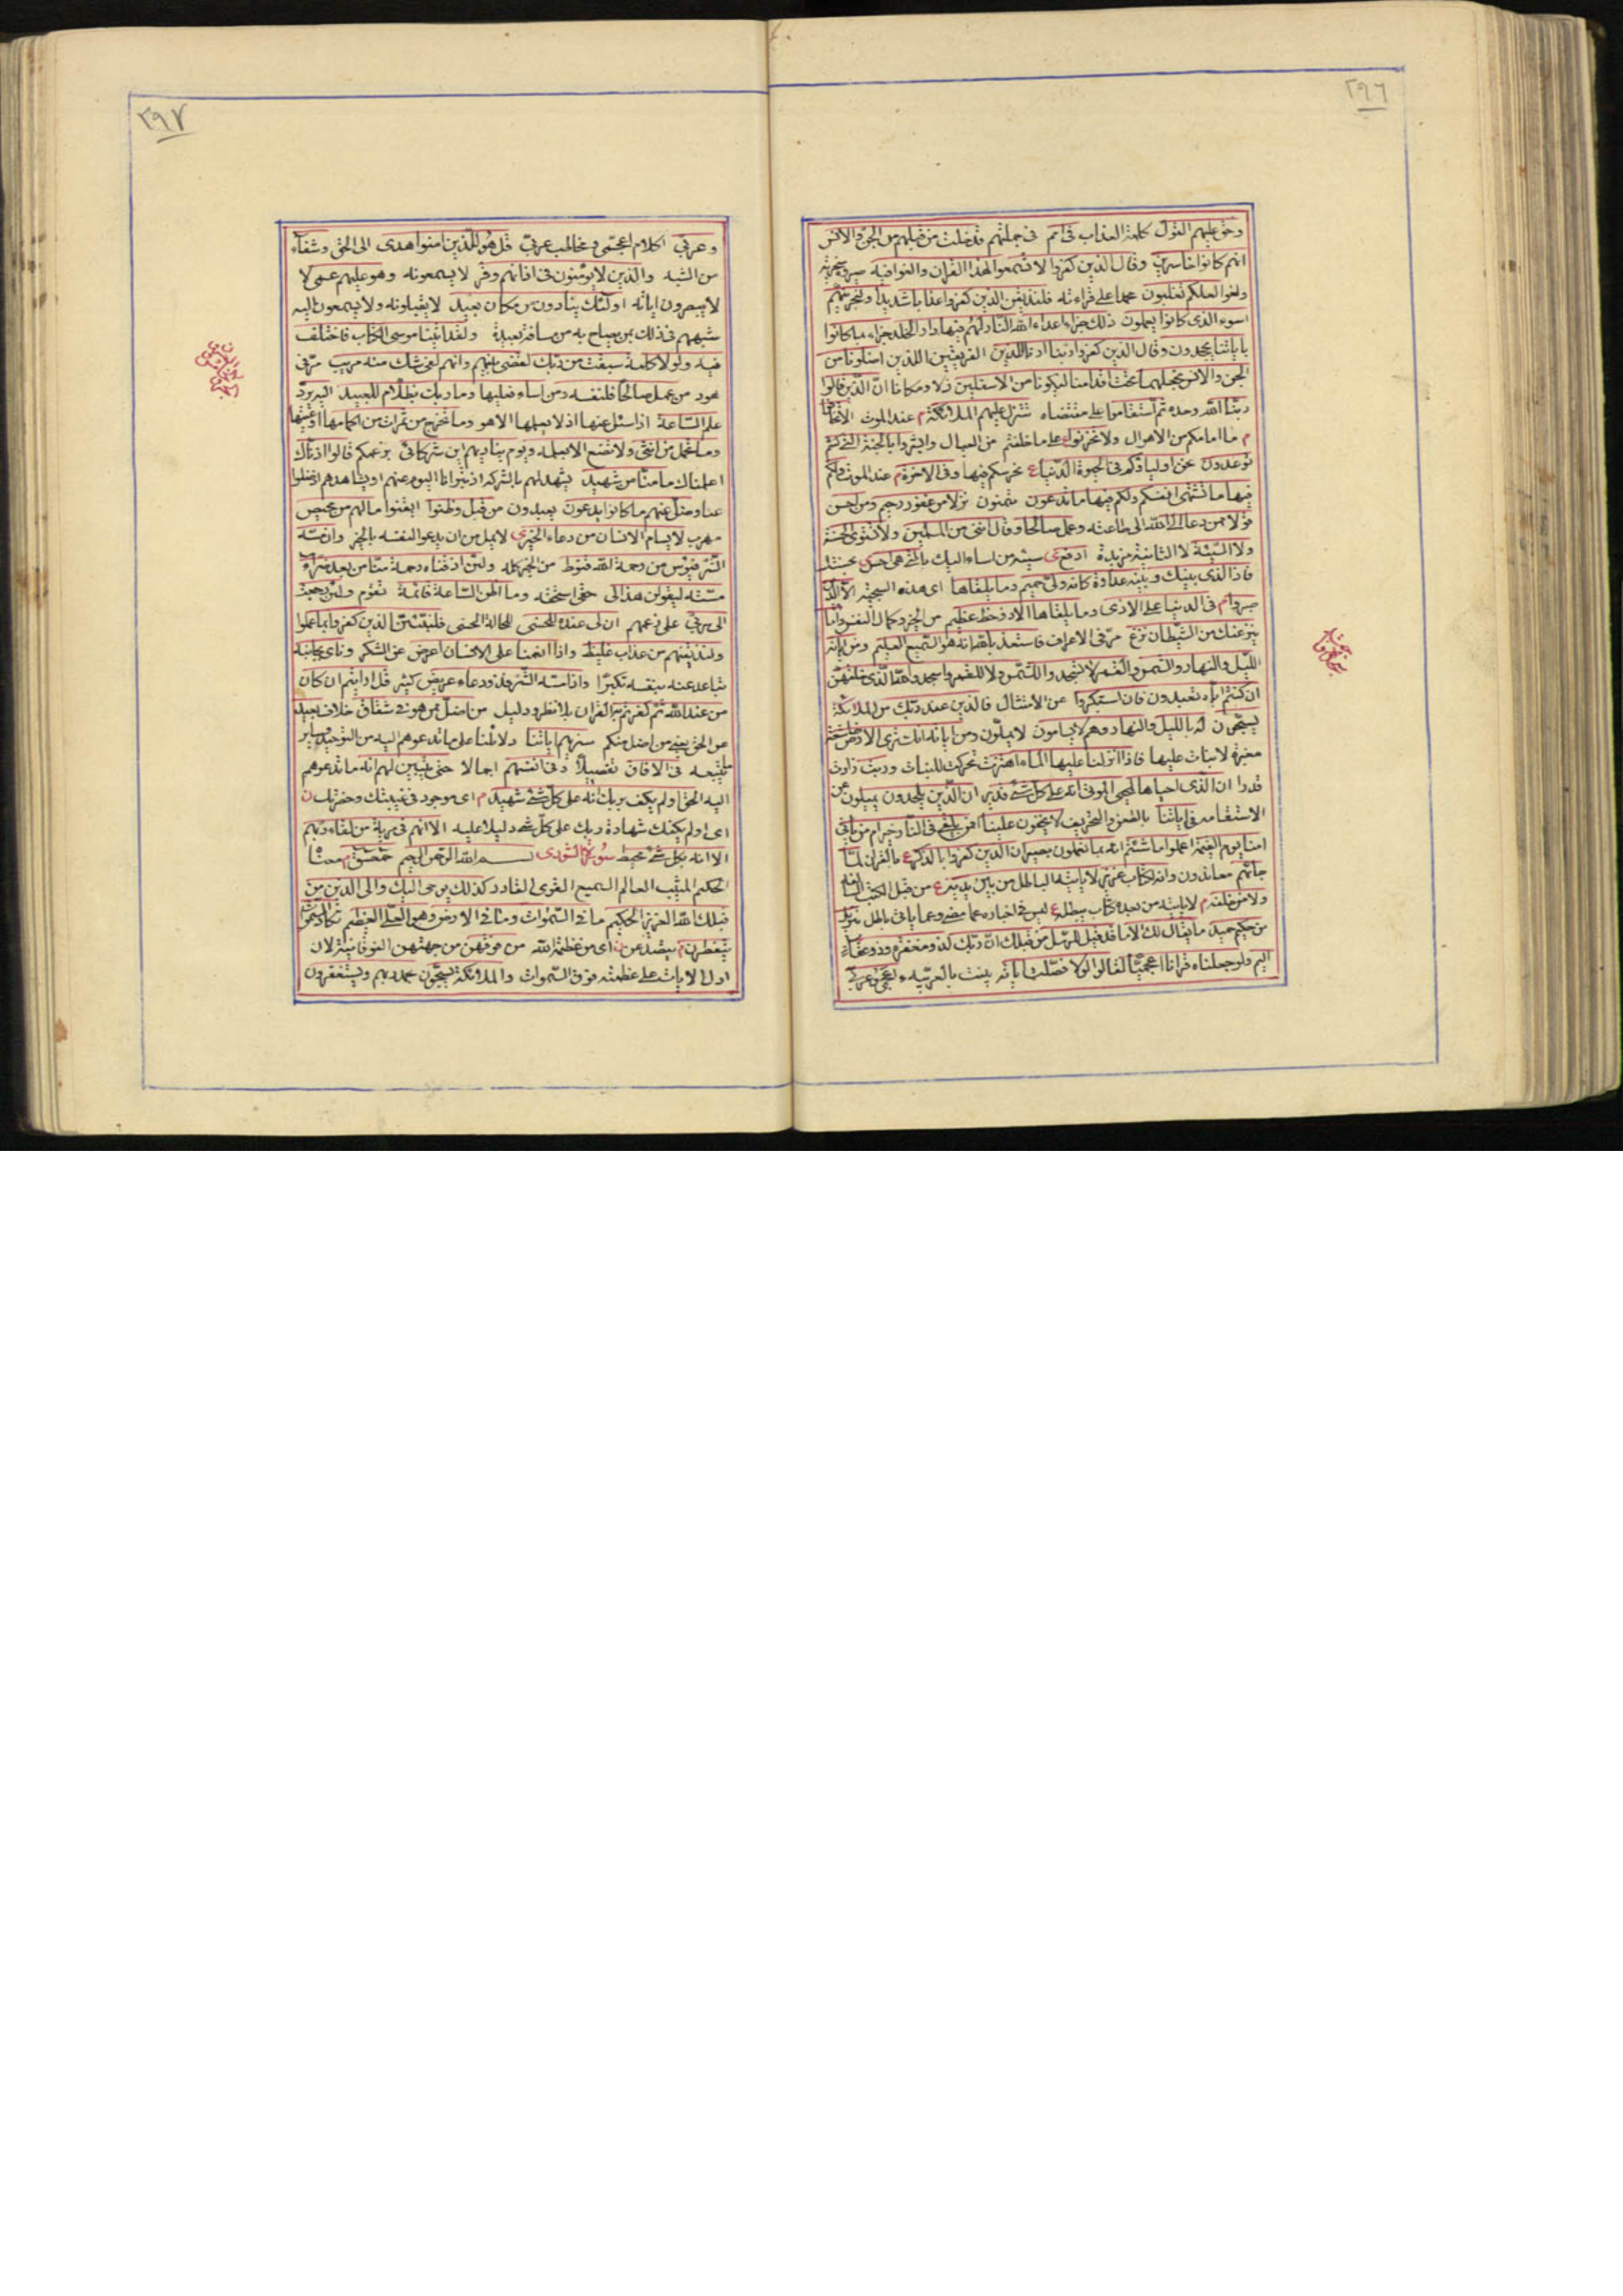 ٢٩٦
وحق عليهم القول كلمة العذاب في امم في جملتهم قد خلت من قبلهم من الجن والانس
انهم كانوا خاسرين وقال الذين كفروا لا تسمعوا لهذا القران والغوا فيه
والغوا لعلكم تغلبون فلنذيقن الذين كفروا عذابا شديدا ولنجزينهم
اسوء الذي كانوا يعملون ذلك جزاء اعداء الله النار لهم فيها دار الخلد جزاء بما كانوا
باياتنا يجحدون وقال الذين كفروا ربنا ارنا اللذين الفريقين اللذين اضلونا من
الجن والانس نجعلهما تحت اقدامنا ليكونا من الاسفلين ذلا ومكانا ان الذين قالوا
ربنا الله وحده ثم استقاموا على مقتضاه تتنزل عليهم الملائكة م عند الموت الا تخافوا
م ما امامكم من الاهوال ولا تحزنوا على ما خلفتم من العيال وابشروا بالجنة التي كنتم
توعدون نحن اولياؤكم في الحيوة الدنيا ع نحرسكم فيها وفي الاخرة م عند الموت ولكم
فيها ما تشتهي انفسكم ولكم فيها ما تدعون تتمنون نزلا من غفور رحيم ومن احسن
قولا ممن دعا الى الله الى طاعته وعمل صالحا وقال انني من المسلمين ولا تستوي الحسنة
ولا السيئة لا الثانية مزيدة ادفع سيئة من اساء اليك بالتي هي احسن
فاذا الذي بينك وبينه عداوة كانه ولي حميم وما يلقاها اى هذه السجية الا الذين
صبروا م في الدنيا على الاذى وما يلقاها الا ذو حظ عظيم من الخير وكمال النفس واما
ينزغنك من الشيطان نزغ مر في الاعراف فاستعذ بالله انه هو السميع العليم ومن اياته
الليل والنهار والشمس والقمر لا تسجدوا للشمس ولا للقمر واسجدوا لله الذي خلقهن
ان كنتم اياه تعبدون فان استكبروا عن الامتثال فالذين عند ربك من الملائكة
يسبحون له بالليل والنهار وهم لا يسامون لا يملون ومن اياته انك ترى الارض خاشعة
مغبرة لا نبات عليها فاذا انزلنا عليها الماء اهتزت تحركت للنبات وربت زادت
ان الذي احياها لمحيي الموتى انه على كل شئ قدير ان الذين يلحدون يميلون عن
الاستقامة في اياتنا بالطعن والتحريف لا يخفون علينا افمن يلقى في النار خير ام من ياتي
امنا يوم القيمة اعملوا ما شئتم انه بما تعملون بصير ان الذين كفروا بالذكر ع بالقران لما
جائهم معاندون وانه لكتاب عزيز لا ياتيه الباطل من بين يديه ع من قبل الكتب السالفة
ولا من خلفه م لا ياتيه من بعده كتاب يبطله ع ليس في اخباره عما مضى وعما ياتي باطل تنزيل
من حكيم حميد ما يقال لك الا ما قد قيل للرسل من قبلك ان ربك لذو مغفرة وذو عقاب
اليم ولو جعلناه قرانا اعجميا لقالوا لولا فصلت اياته بينت بالعربية ءاعجمي وعربي
٢٩٧
وعربي اكلام اعجمي ومخاطب عربي قل هو للذين امنوا هدى الى الحق وشفاء
من الشبه والذين لا يؤمنون في اذانهم وقر لا يسمعونه وهو عليهم عمى لا
لا يبصرون اياته اولئك ينادون من مكان بعيد لا يقبلونه ولا يسمعون اليه
شبههم في ذلك بمن يصاح به من مسافة بعيدة ولقد اتينا موسى الكتاب فاختلف
فيه ولولا كلمة سبقت من ربك لقضى بينهم وانهم لفي شك منه مريب مر في
هود من عمل صالحا فلنفسه ومن اساء فعليها وما ربك بظلام للعبيد اليه يرد
علم الساعة اذا سئل عنها اذ لا يعلمها الا هو وما تخرج من ثمرات من اكمامها اوعيتها
وما تحمل من انثى ولا تضع الا بعلمه ويوم يناديهم اين شركائي بزعمكم قالوا اذناك
اعلمناك ما منا من شهيد يشهد لهم بالشركة اذ تبرانا اليوم عنهم او يشاهدهم اذ ضلوا
عنا وضل عنهم ما كانوا يدعون يعبدون من قبل وظنوا ايقنوا ما لهم من محيص
مهرب لا يسام الانسان من دعاء الخير لا يمل من ان يدعو لنفسه بالخير وان مسه
الشر فيؤس من رحمة الله قنوط من الخير كله ولئن اذقناه رحمة منا من بعد ضراء
مسته ليقولن هذا لي حقي استحقه وما اظن الساعة قائمة تقوم ولئن رجعت
الى ربي على زعمهم ان لي عنده للحسنى للحالة الحسنى فلننبئن الذين كفروا بما عملوا
ولنذيقنهم من عذاب غليظ واذا انعمنا على الانسان اعرض عن الشكر وناى بجانبه
تباعد عنه بنفسه تكبرا واذا مسه الشر فذو دعاء عريض كثير قل ارايتم ان كان
من عند الله ثم كفرتم به القران بلا نظر ودليل من اضل ممن هو في شقاق خلاف بعيد
عن الحق يعني من اضل منكم سنريهم اياتنا دلائلنا على ما تدعوهم اليه من التوحيد
في الافاق تفصيلا وفي انفسهم اجمالا حتى يتبين لهم انه ما تدعوهم
اليه الحق اولم يكف بربك انه على كل شئ شهيد م اى موجود في غيبتك وحضرتك ن
اى اولم يكفك شهادة ربك على كل شئ دليلا عليه الا انهم في مرية من لقاء ربهم
الا انه بكل شئ محيط سورة الشورى بسم الله الرحمن الرحيم حمعسق معناه
الحكيم المثيب العالم السميع القوى القادر كذلك يوحى اليك والى الذين من
قبلك الله العزيز الحكيم ما في السموات وما في الارض وهو العلي العظيم تكاد السموات
يتفطرن م يتصدعن ن اى من عظمة الله من فوقهن من جهتهن الفوقانية لان
ادل الايات على عظمته فوق السموات والملائكة يسبحون بحمد ربهم ويستغفرون